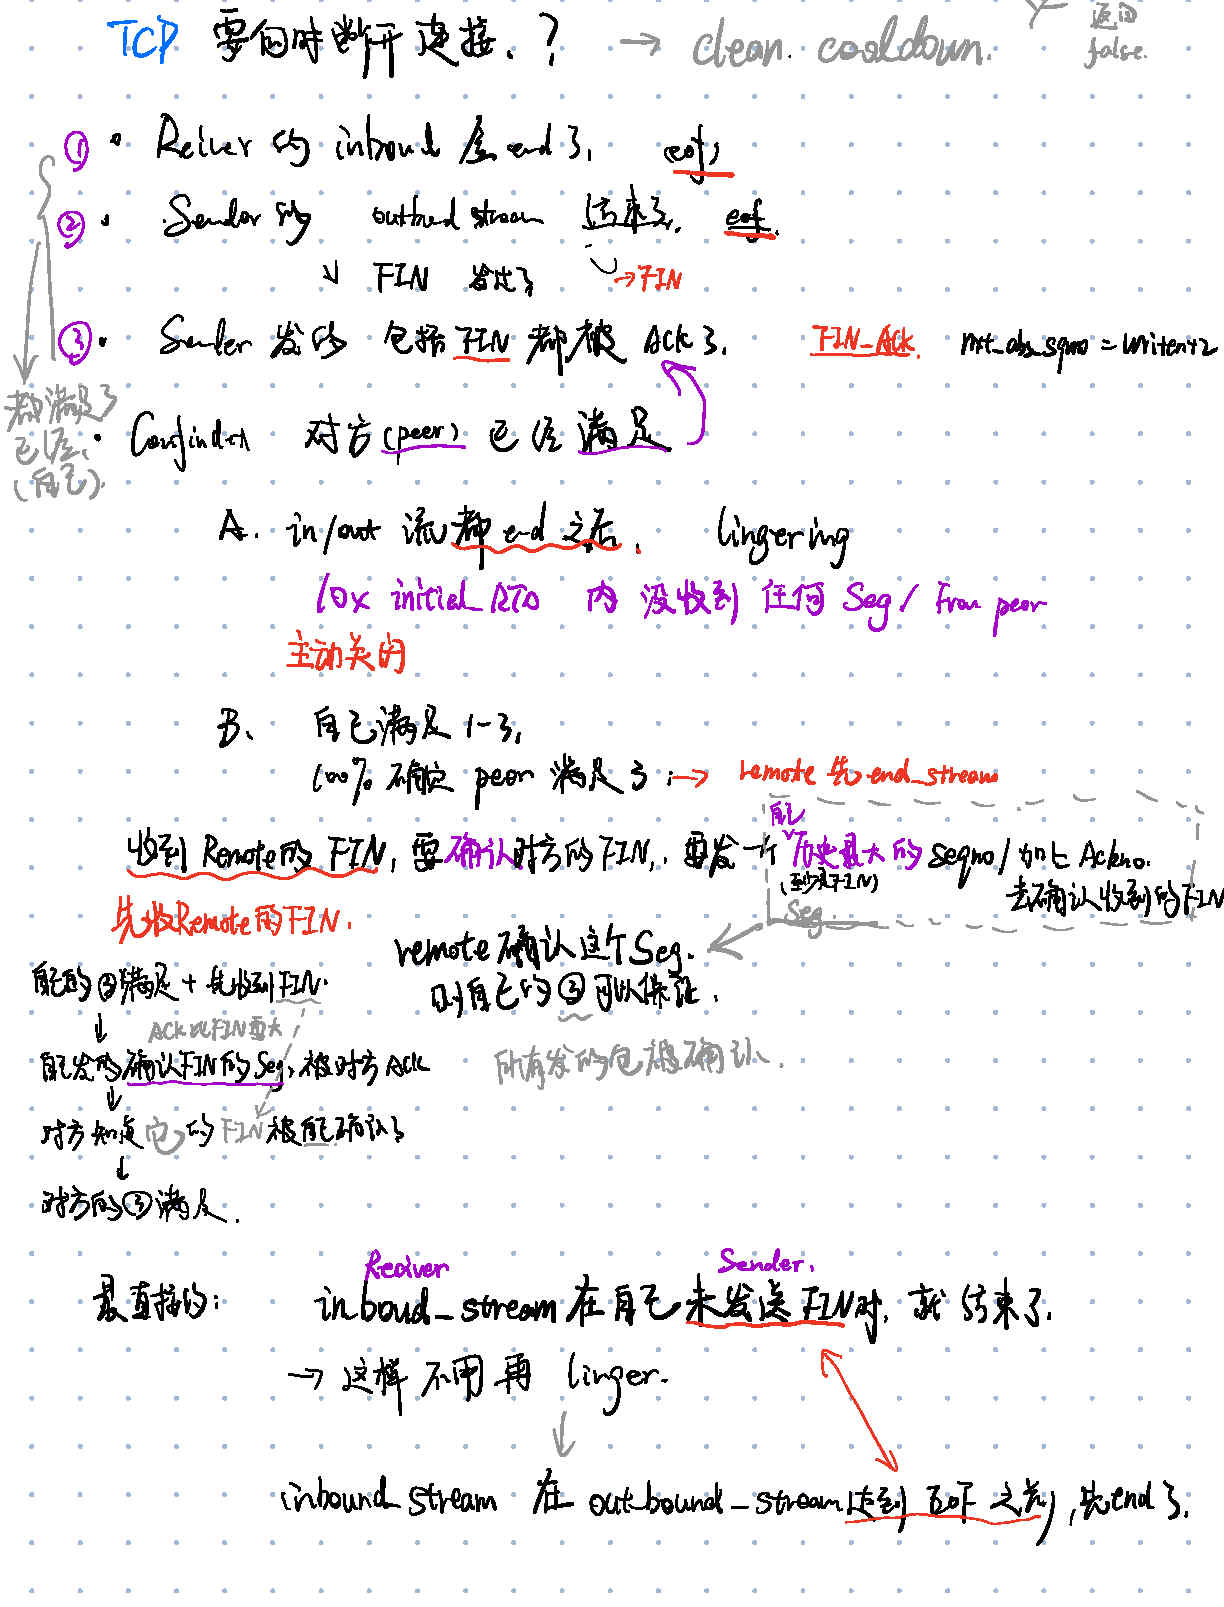 TCP 要何时断开连接.？ → clean. cooldown.
返回
false.
① · Reiver 的 inbound 流 end 了, eof,
② · Sender的 outbund stream 结束了. eof.
↓ FIN 发过了 → FIN
③ · Sender 发的 包括 FIN 都被 ACK了. FIN_ACK. nxt_abs_sqno = written+2
都满足了
已经.
(自己).
· Confindet 对方(peer) 已经 满足
A. in/out 流都 end 之后. lingering
10x initial_RTO 内 没收到 任何 Seg / From peer
主动关闭
B、 自己满足 1-3,
100% 确定 peer 满足 3 : → remote 先 end_stream
自己
收到 Remote的 FIN, 要确认对方的 FIN,. 要发一个 历史最大的 seqno / 加上 Ackno.
(至少是FIN) 去确认收到的FIN
Seg.
先收Remote的FIN.
remote 确认这个 Seg.
则自己的 ③ 可以保证.
自己的③满足 + 先收到FIN.
↓ ACK比FIN要大
自己发的确认FIN的Seg, 被对方ACK
所有发的包被确认.
↓
对方知道它的 FIN 被自己确认了
↓
对方的③满足.
Reciver Sender.
最直接的: inboud_stream 在自己未发送 FIN时, 就结束了.
→ 这样不用再 linger.
↓
inbound_stream 在 out_bound_stream 达到 EOF 之前, 先end了.